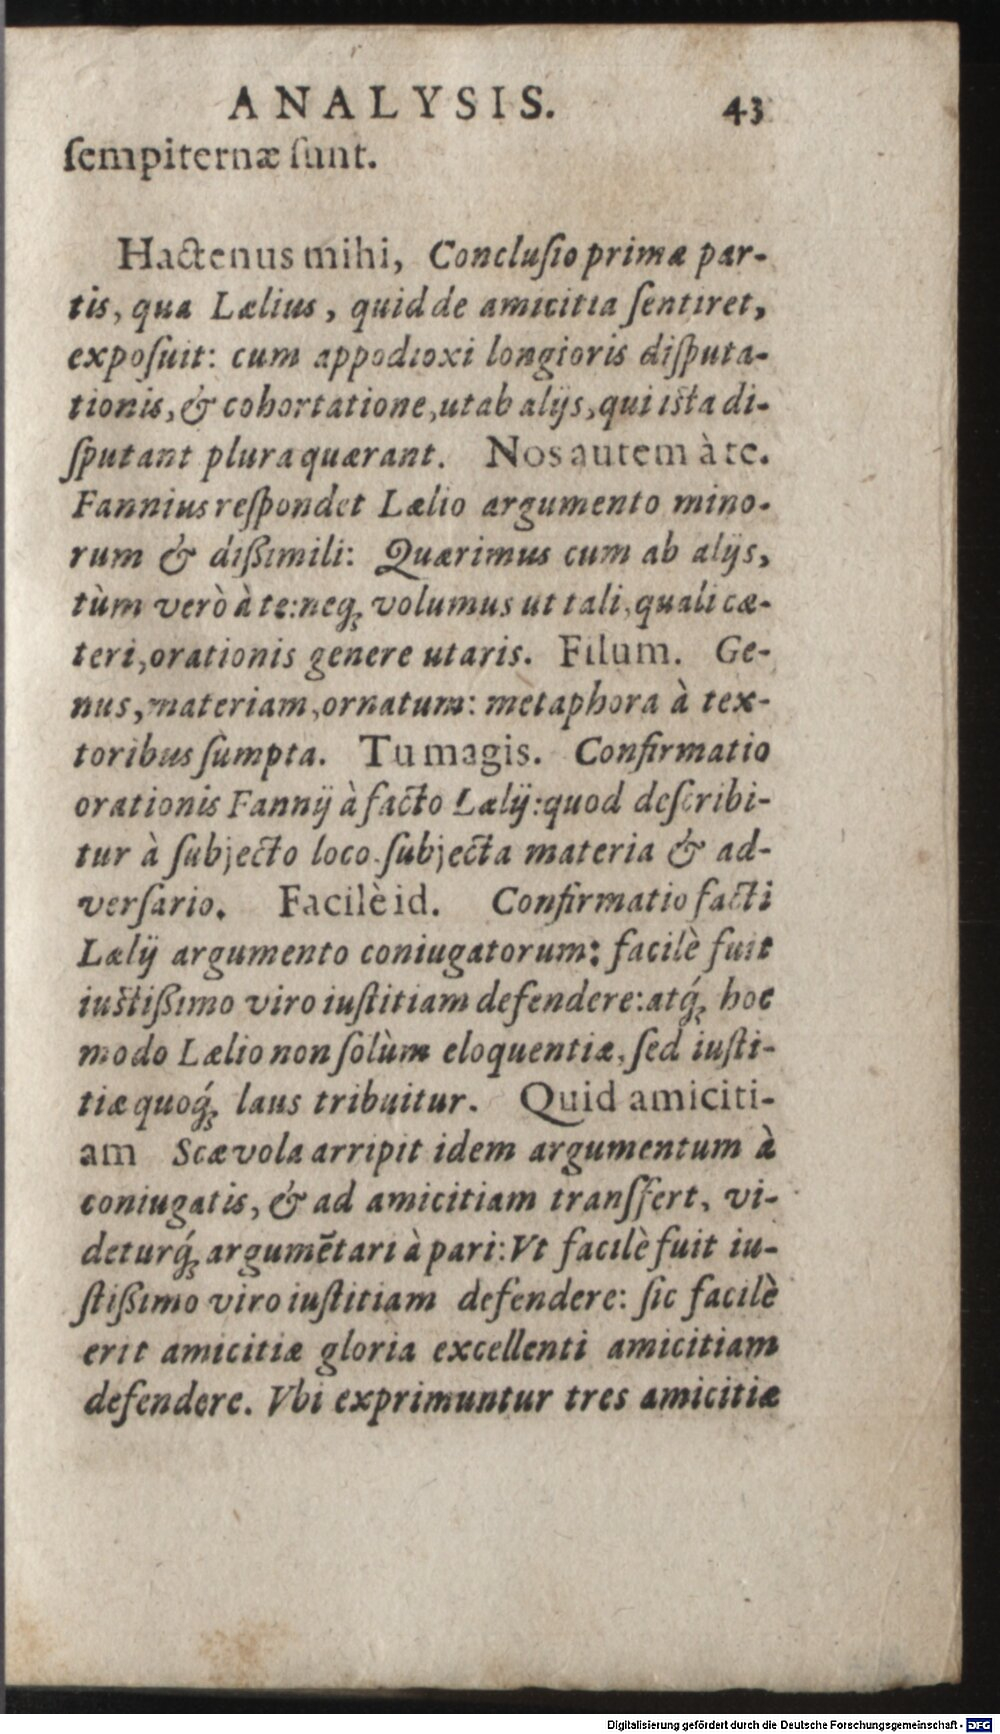 ANALYSIS. 43
ſempiternæ ſunt.
Hactenus mihi, Concluſio primæ par-
tis, qua Lælius, quid de amicitia ſentiret,
expoſuit: cum appodioxi longioris diſputa-
tionis, & cohortatione, ut ab alijs, qui iſta di-
ſputant plura quærant. Nos autem à te.
Fannius reſpondet Lælio argumento mino-
rum & dißimili: Quærimus cum ab alijs,
tùm verò à te: neq́; volumus ut tali, quali cæ-
teri, orationis genere utaris. Filum. Ge-
nus, materiam, ornatum: metaphora à tex-
toribus ſumpta. Tu magis. Confirmatio
orationis Fannij à facto Lælij: quod deſcribi-
tur à ſubjecto loco. ſubjecta materia & ad-
verſario. Facilè id. Confirmatio facti
Lælij argumento coniugatorum: facilè fuit
iuſtißimo viro iuſtitiam defendere: atq́; hoc
modo Lælio non ſolùm eloquentiæ, ſed iuſti-
tiæ quoq́; laus tribuitur. Quid amiciti-
am Scævola arripit idem argumentum à
coniugatis, & ad amicitiam transfert, vi-
deturq́; argumẽtari à pari: Vt facilè fuit iu-
ſtißimo viro iuſtitiam defendere: ſic facilè
erit amicitiæ gloria excellenti amicitiam
defendere. Vbi exprimuntur tres amicitiæ
Digitalisierung gefördert durch die Deutsche Forschungsgemeinschaft - DFG